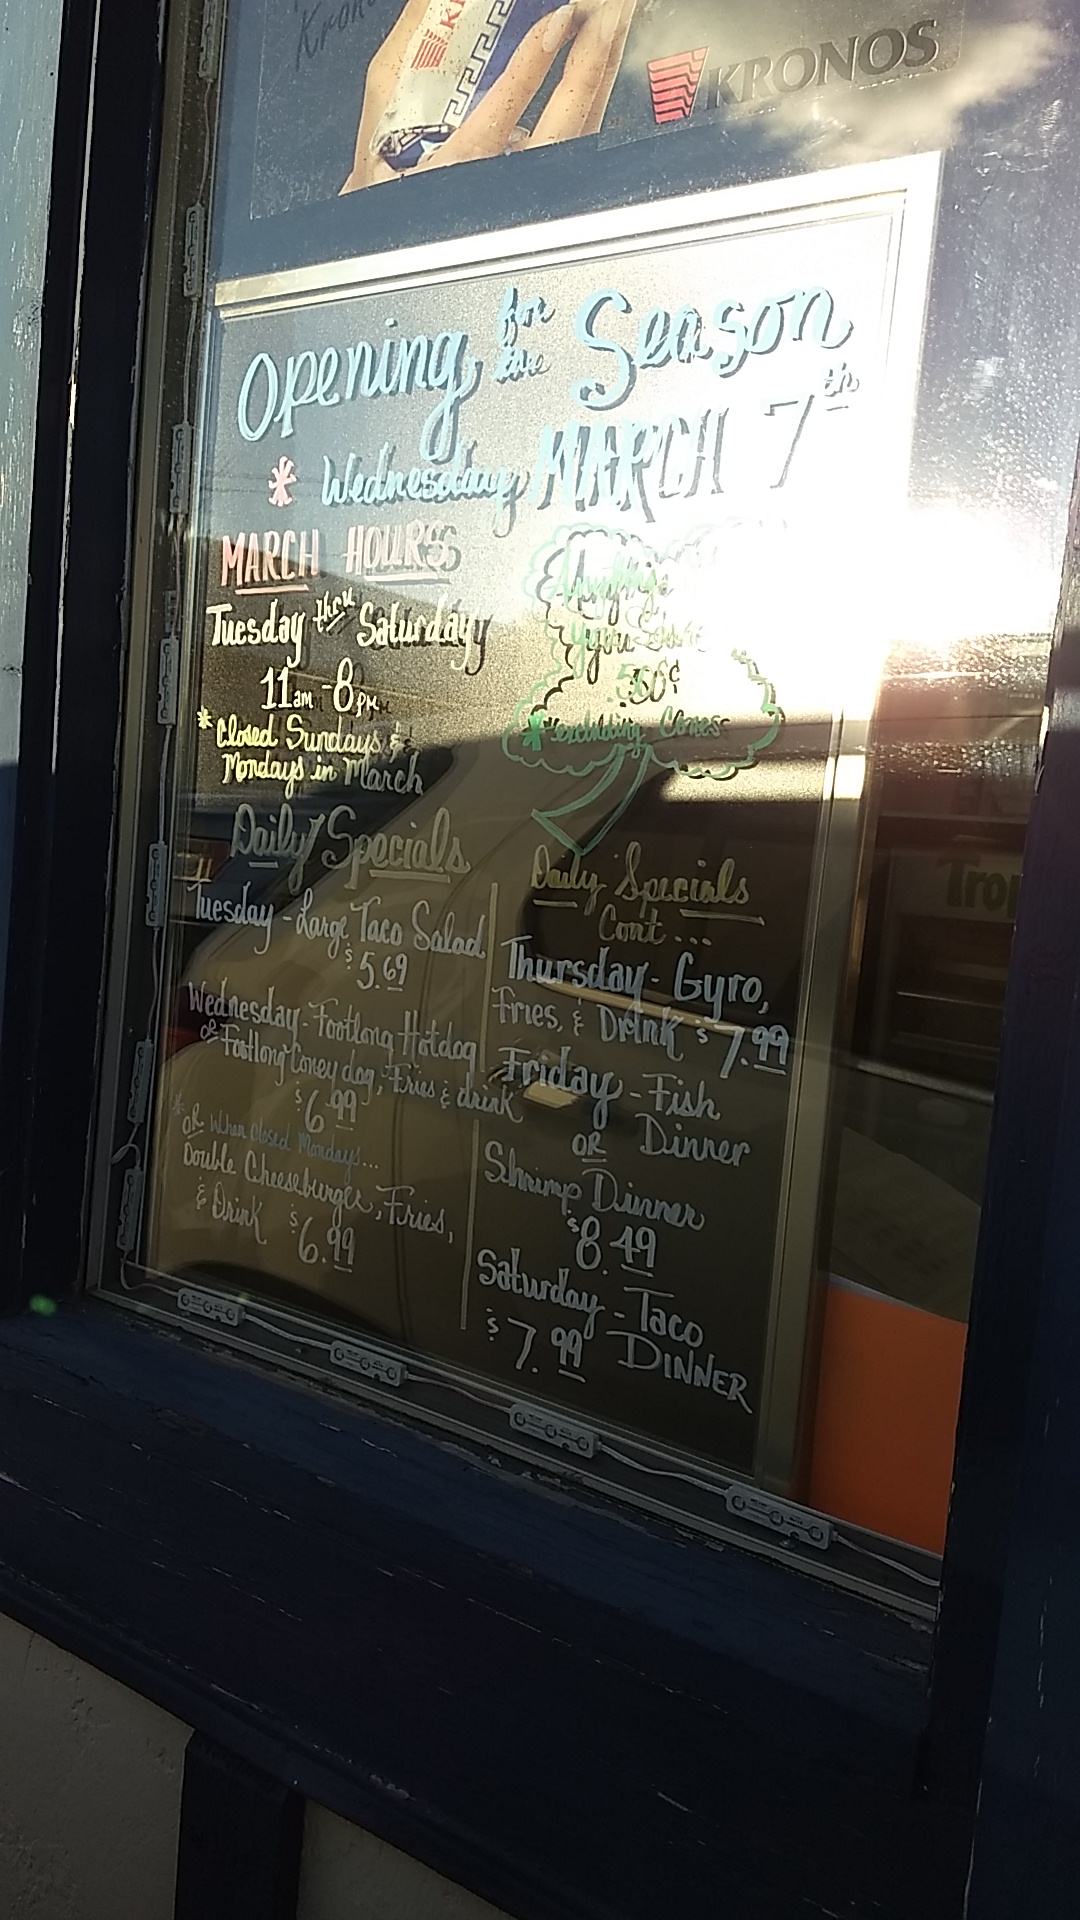 KRONOS
Opening for the Season
* Wednesday MARCH 7th
MARCH HOURS
Tuesday thru Saturday
11am - 8pm
*Closed Sundays &
Mondays in March
Anything
50¢
*excluding Cones
Daily Specials
Tuesday - Large Taco Salad
$5.69
Wednesday - Footlong Hotdog
or Footlong Coney dog, Fries & drink
$6.99
*OR When Closed Mondays...
Double Cheeseburger, Fries,
& Drink $6.99
Daily Specials
Cont...
Thursday - Gyro,
Fries, & Drink $7.99
Friday - Fish
OR Dinner
Shrimp Dinner
$8.49
Saturday - Taco
$7.99 DINNER